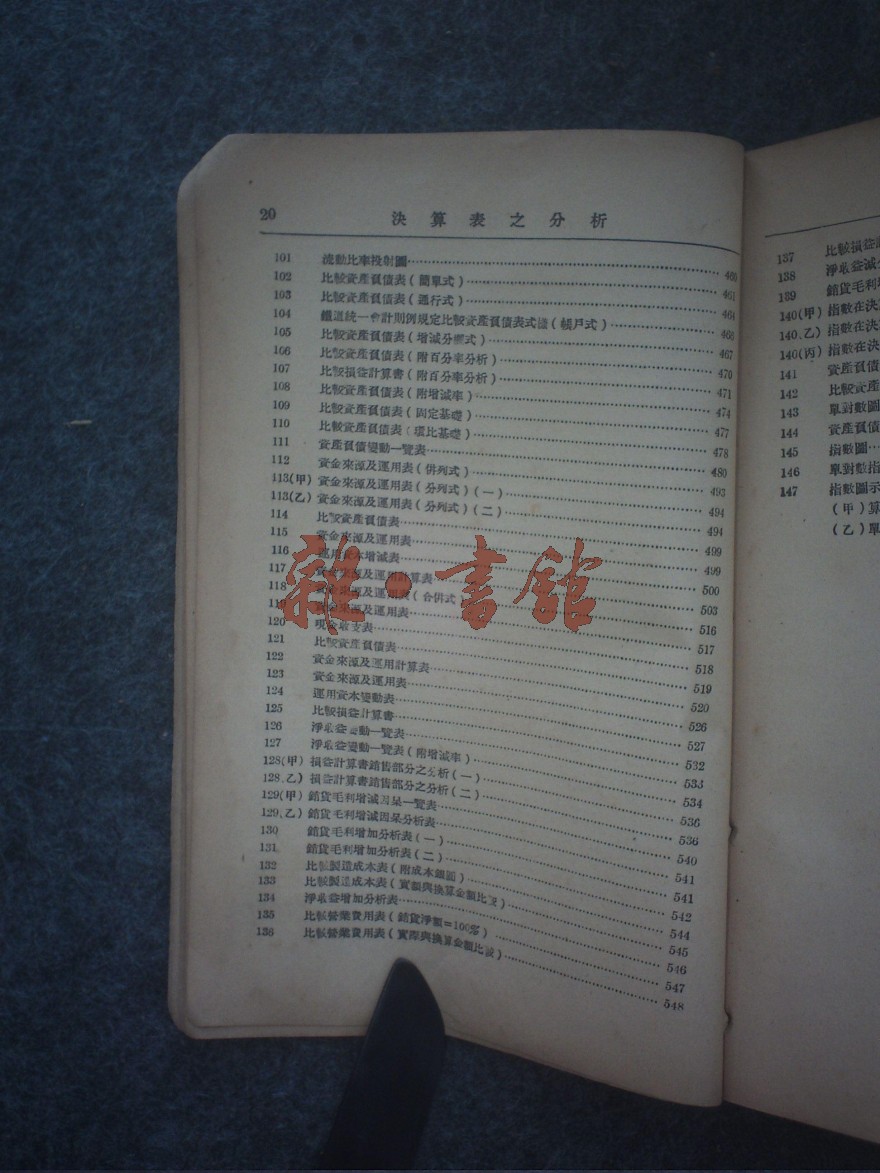 20 決算表之分析
101 流動比率投射圖 460
102 比較資產負債表(簡單式) 461
103 比較資產負債表(通行式) 464
104 鐵道統一會計則例規定比較資產負債表式樣(帳戶式) 466
105 比較資產負債表(增減分欄式) 467
106 比較資產負債表(附百分率分析) 470
107 比較損益計算書(附百分率分析) 471
108 比較資產負債表(附增減率) 474
109 比較資產負債表(固定基礎) 477
110 比較資產負債表(環比基礎) 478
111 資產負債變動一覽表 480
112 資金來源及運用表(併列式) 493
113(甲) 資金來源及運用表(分列式)(一) 494
113(乙) 資金來源及運用表(分列式)(二) 494
114 比較資產負債表 499
115 資金來源及運用表 499
116 運用資本增減表 500
117 資金來源及運用計算表 503
118 資金來源及運用表(合併式) 516
119 資金來源及運用表 517
120 現金收支表 518
121 比較資產負債表 519
122 資金來源及運用計算表 520
123 資金來源及運用表 526
124 運用資本變動表 527
125 比較損益計算書 532
126 淨收益變動一覽表 533
127 淨收益變動一覽表(附增減率) 534
128(甲) 損益計算書銷售部分之分析(一) 536
128(乙) 損益計算書銷售部分之分析(二) 536
129(甲) 銷貨毛利增減因果一覽表 540
129(乙) 銷貨毛利增減因果分析表 541
130 銷貨毛利增加分析表(一) 541
131 銷貨毛利增加分析表(二) 542
132 比較製造成本表(附成本細圖) 544
133 比較製造成本表(實額與換算金額比較) 545
134 淨收益增加分析表 546
135 比較營業費用表(銷貨淨額=100%) 547
136 比較營業費用表(實際與換算金額比較) 548
雜·書館
137 比較損益
138 淨收益減
139 銷貨毛利增
140(甲) 指數在決
140(乙) 指數在決
140(丙) 指數在決
141 資產負債
142 比較資產
143 單對數圖
144 資產負債
145 指數圖
146 單對數指
147 指數圖示
(甲)算
(乙)單